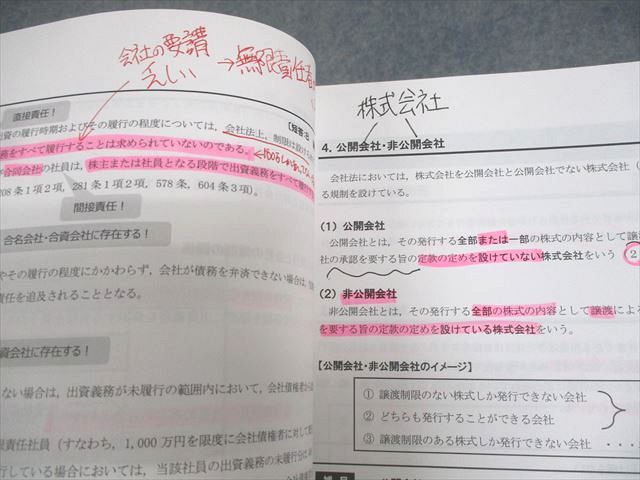 会社の要請
→無限責任者
直接責任！
資の履行時期およびその履行の程度については，会社法上，制限は設け
務をすべて履行することは求められていないのである。
合同会社の社員は，株主または社員となる段階で出資義務をすべて履行
208条1項2項，281条1項2項，578条，604条3項）。
間接責任！
合名会社・合資会社に存在する！
やその履行の程度にかかわらず，会社が債務を弁済できない場合は，
責任を追及されることとなる。
資会社に存在する！
ない場合は，出資義務が未履行の範囲内において，会社債権者から
限責任社員（すなわち，1,000万円を限度に会社債権者に対して
行している場合においては，当該社員の出資義務の未履行分は
株式会社
4．公開会社・非公開会社
会社法においては，株式会社を公開会社と公開会社でない株式会社（
る規制を設けている。
（1）公開会社
公開会社とは，その発行する全部または一部の株式の内容として譲渡
社の承認を要する旨の定款の定めを設けていない株式会社をいう（2
（2）非公開会社
非公開会社とは，その発行する全部の株式の内容として譲渡によ
を要する旨の定款の定めを設けている株式会社をいう。
【公開会社・非公開会社のイメージ】
① 譲渡制限のない株式しか発行できない会社
② どちらも発行することができる会社
③ 譲渡制限のある株式しか発行できない会社 ・・・・